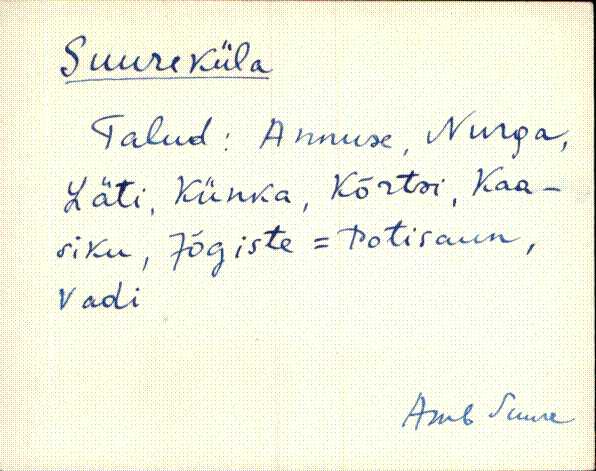 Suureküla
Talud: Annuse, Nurga,
Läti, Künka, Kõrtsi, Kaa-
siku, Jõgiste = Potisaun,
Vadi
Amb Suure